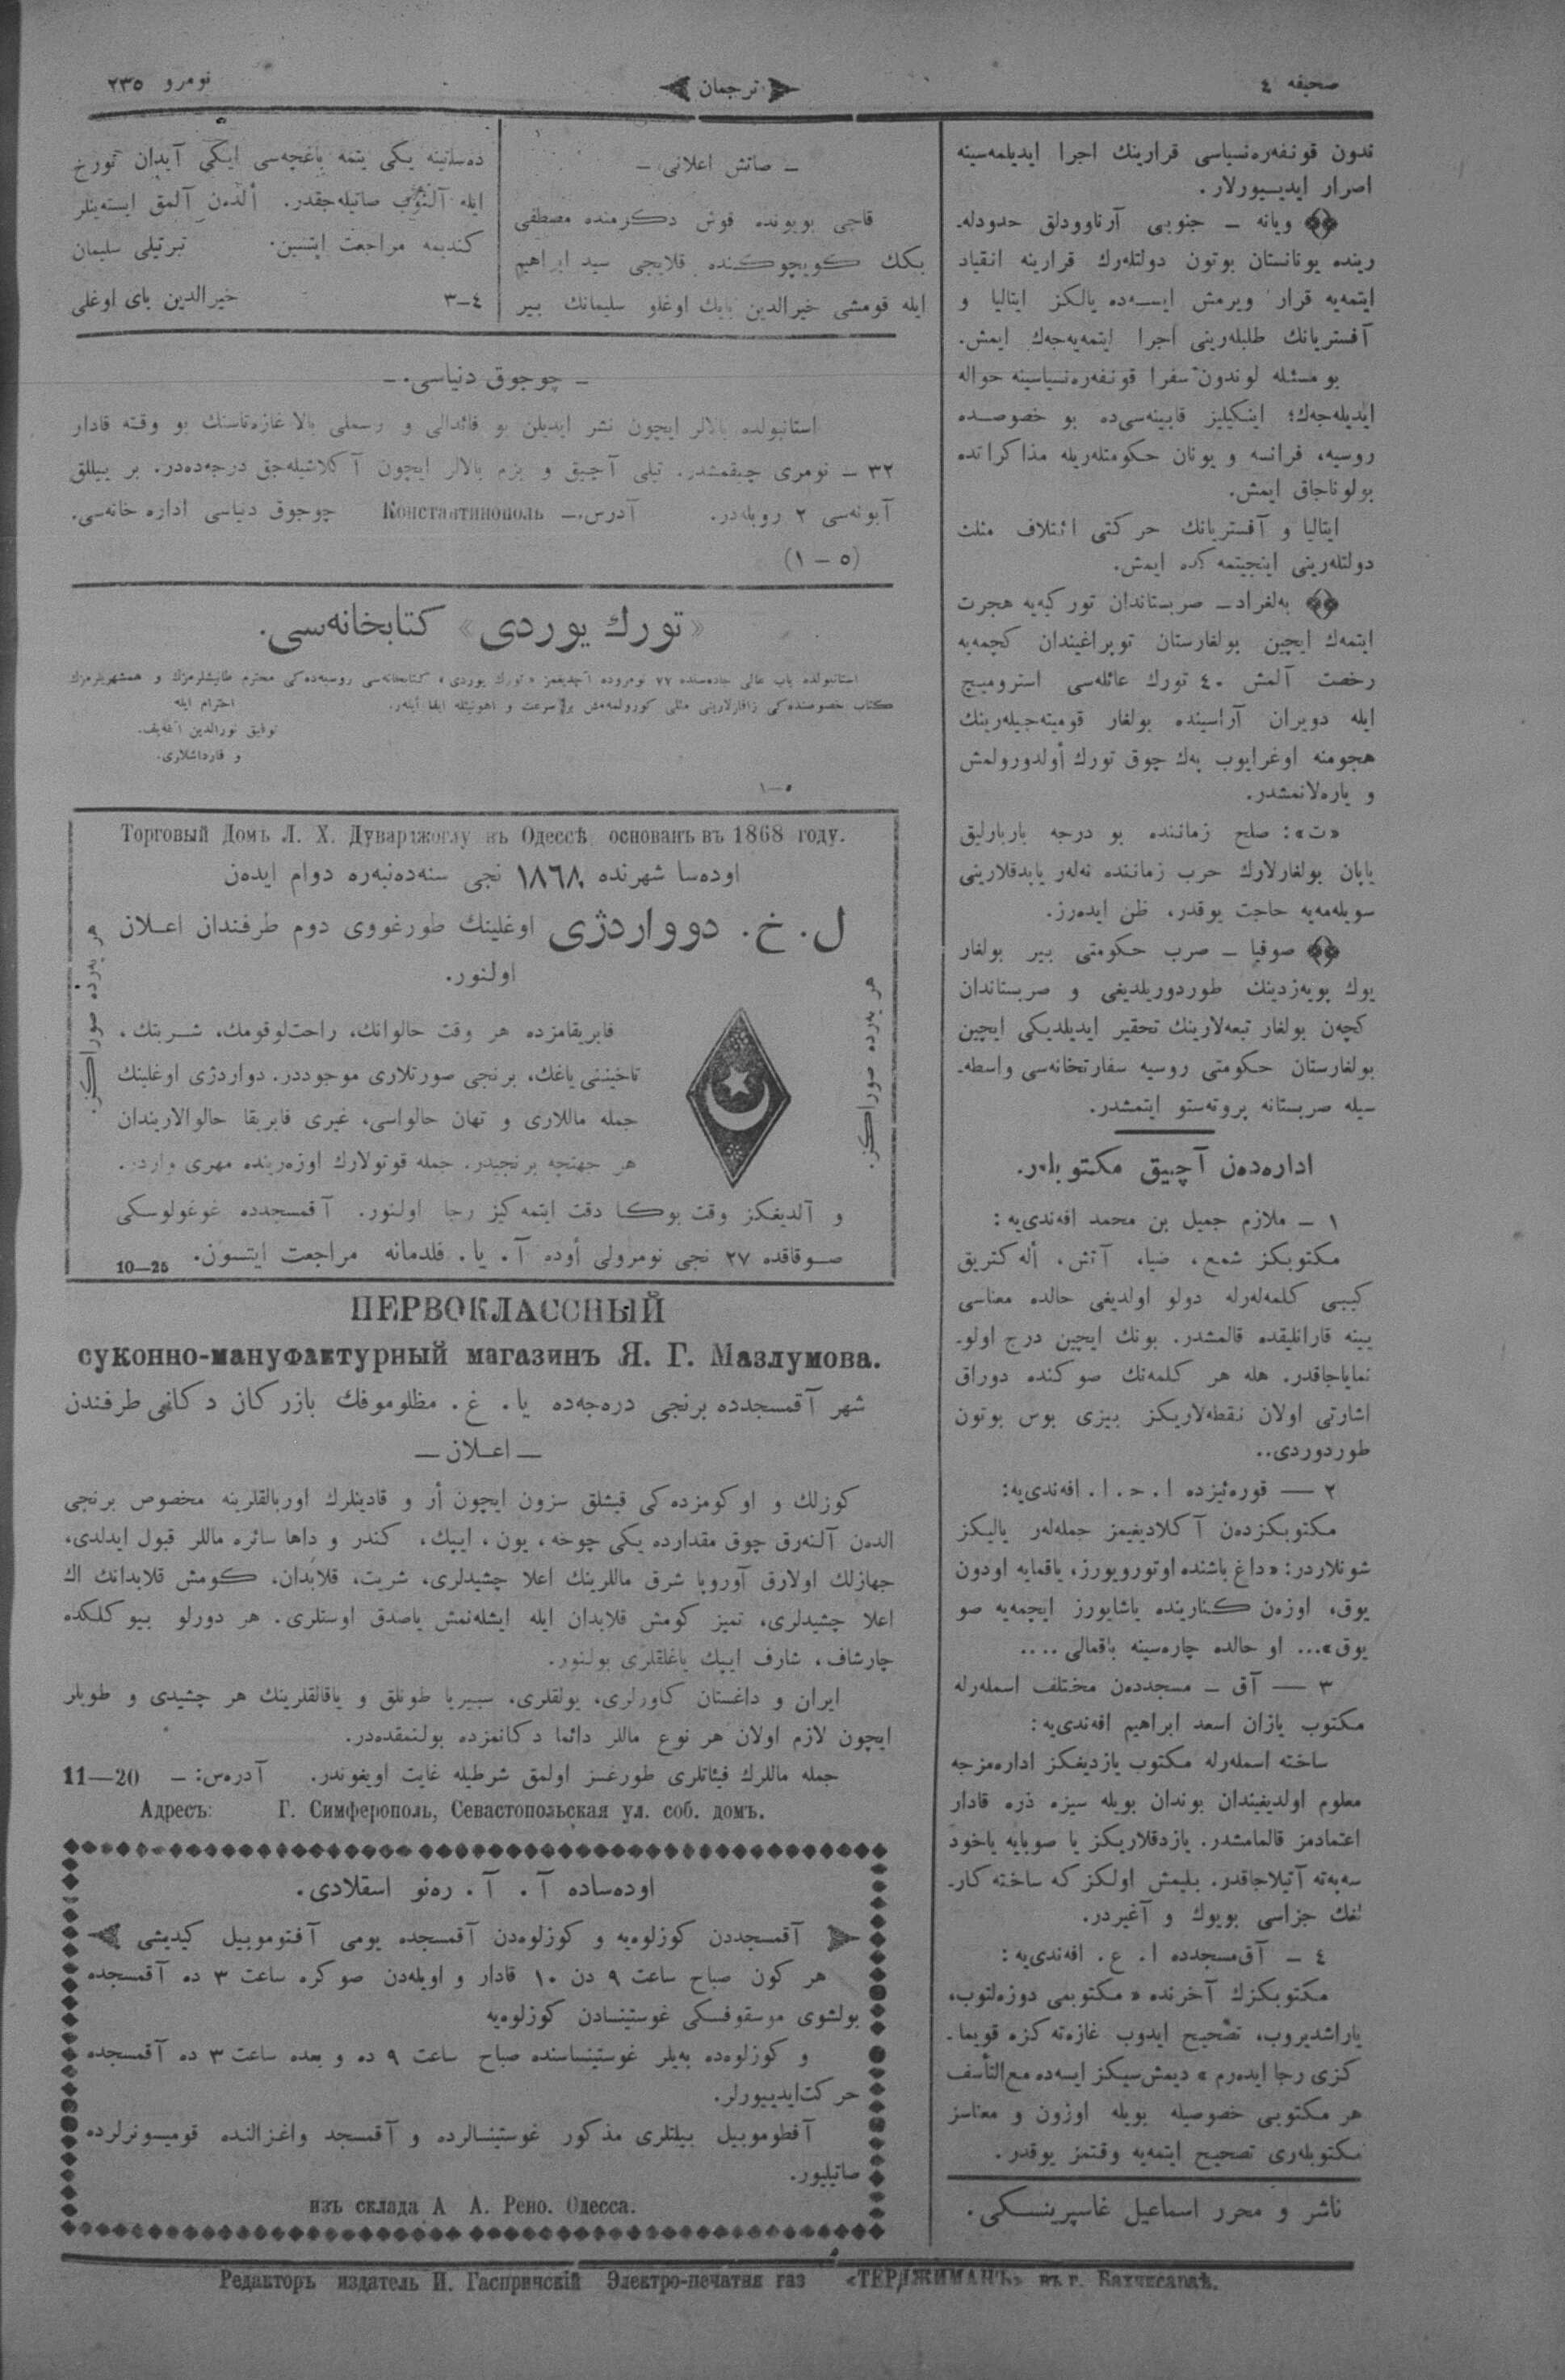 صحیفه ٤
ترجمان
نومرو ٢٣٥
ندون قونفه‌ره‌نسیاسی قرارینك اجرا ایدیلمه‌سینه
اصرار ایدییورلار.
ویانه – جنوبی آرناوودلق حدودله‌ـ
رینده یونانستان بوتون دولتله‌رك قرارینه انقیاد
ایتمه‌یه قرار ویرمش ایسه‌ده یالكز ایتالیا و
آفستریانك طلبله‌رینی اجرا ایتمه‌یه‌جه‌ك ایمش.
بو مسئله لوندون سفرا قونفه‌ره‌نسیاسینه حواله
ایدیله‌جه‌ك؛ اینكیلیز قابینه‌سی‌ده بو خصوصده
روسیه، فرانسه و یونان حكومتله‌ریله مذاكراتده
بولوناجاق ایمش.
ایتالیا و آفستریانك حركتی ائتلاف مثلث
دولتله‌رینی اینجیتمه‌كده ایمش.
به‌لغراد – صربستاندان توركیه‌یه هجرت
ایتمه‌ك ایچین بولغارستان توپراغیندان كچمه‌یه
رخصت آلمش ٤٠ تورك عائله‌سی استرومیچ
ایله دویران آراسینده بولغار قومیته‌جیله‌رینك
هجومنه اوغرایوب په‌ك چوق تورك أولدورولمش
و یاره‌لانمشدر.
«ت»: صلح زماننده بو درجه باربارلیق
یاپان بولغارلارك حرب زماننده نه‌لەر یاپدقلارینی
سویله‌مه‌یه حاجت یوقدر، ظن ایده‌رز.
صوفیا – صرب حكومتی بیر بولغار
یوك پویه‌زدینك طوردوریلدیغی و صربستاندان
كچه‌ن بولغار تبعه‌لارینك تحقیر ایدیلدیكی ایچین
بولغارستان حكومتی روسیه سفارتخانه‌سی واسطه‌ـ
سیله صربستانه پروته‌ستو ایتمشدر.
اداره‌دەن آچیق مكتوبلەر.
١ – ملازم جمیل بن محمد افه‌ندی‌یه:
مكتوبكز شمع، ضیا، آتش، أله‌كتریق
كیبی كلمه‌له‌رله دولو اولدیغی حالده معناسی
یینه قارانلیقده قالمشدر. بونك ایچین درج اولوـ
نمایاجاقدر. هله هر كلمه‌نك صوكنده دوراق
اشارتی اولان نقطه‌لاریكز بیزی بوس بوتون
طوردوردی..
٢ — قوره‌ئیزده ا. ح. ا. افه‌ندی‌یه:
مكتوبكزدەن آكلادیغیمز جمله‌لەر یالیكز
شونلاردر: «داغ باشنده اوتورویورز، یاقمایه اودون
یوق، اوزەن كنارینده یاشایورز ایچمه‌یه صو
یوق»... او حالده چاره‌سینه باقمالی....
٣ — آق – مسجددەن مختلف اسمله‌رله
مكتوب یازان اسعد ابراهیم افه‌ندی‌یه:
ساخته اسمله‌رله مكتوب یازدیغكز اداره‌مزجه
معلوم اولدیغیندان بوندان بویله سیزه ذره قادار
اعتمادمز قالمامشدر. یازدقلاریكز یا صوبایه یاخود
سه‌په‌ته آتیلاجاقدر. بیلیمش اولكز كه ساخته كارـ
لغك جزاسی بویوك و آغیردر.
٤ – آق‌مسجدده ا. ع. افه‌ندی‌یه:
مكتوبكزك آخرنده «مكتوبمی دوزه‌لتوب،
یاراشدیروب، تصحیح ایدوب غازه‌ته‌كزه قویماـ
كزی رجا ایده‌رم» دیمش‌سیكز ایسه‌ده مع‌التأسف
هر مكتوبی خصوصیله بویله اوزون و معناسز
مكتوبلەری تصحیح ایتمه‌یه وقتمز یوقدر.
ناشر و محرر اسماعیل غاسپرینسكی.
– صاتش اعلانی. –
قاچی بویونده قوش دكرمنده مصطفی
بكك كویچوكنده قلایجی سید ابراهیم
ایله قومشی خیرالدین بایك اوغلو سلیمانك بیر
ده‌ساتینه یكی یتمه باغچه‌سی ایكی آیدان تورخ
ایله آلنوب صاتیله‌جقدر. ألدەن آلمق ایسته‌ینلر
كندیمه مراجعت ایتسین. تبرتیلی سلیمان
٤–٣ خیرالدین بای اوغلی
– چوجوق دنیاسی. –
استانبولده بالالر ایچون نشر ایدیلن بو فائدالی و رسملی بالا غازه‌تاسنك بو وقته قادار
٣٢ – نومری چیقمشدر. تیلی آچیق و بزم بالالر ایچون آكلاشیله‌جق درجه‌ده‌در. بر ییللق
آبونه‌سی ٢ روبله‌در. آدرس. – Константинополь چوجوق دنیاسی اداره خانه‌سی.
(٥ – ١)
«تورك یوردی» كتابخانه‌سی.
استانبولده باب عالی جاده‌سنده ٧٧ نومروده آچدیغمز «تورك یوردی» كتابخانه‌سی روسیه‌ده‌كی محترم طانیشلرمزك و همشهریلرمزك
كتاب خصوصنده‌كی زاقازلارینی مثلی كورولمه‌مش بر سرعت و اهونیتله ایفا ایلەر. احترام ایله
توفیق نورالدین آغه‌یف.
و قارداشلاری.
٥–١
Торговый Домъ Л. Х. Дуварджоглу въ Одессѣ основанъ въ 1868 году.
اوده‌سا شهرنده ١٨٦٨ نجی سنه‌دەنبەره دوام ایدەن
ل. خ. دوواردژی اوغلینك طورغووی دوم طرفندان اعلان
اولنور.
هر یه‌رده صوراكز.
هر یه‌رده صوراكز.
فابریقامزده هر وقت حالوانك، راحت‌لوقومك، شربتك،
تاخیننی یاغك، برنجی صورتلاری موجوددر. دواردژی اوغلینك
جمله ماللاری و تهان حالواسی، غیری فابریقا حالوالاریندان
هر جهتجه برنجیدر. جمله قوتولارك اوزه‌رینده مهری واردر.
و آلدیغكز وقت بوكا دقت ایتمه‌كیز رجا اولنور. آقمسجدده غوغولوسكی
صوقاقده ٢٧ نجی نومرولی أوده آ. یا. فلدمانه مراجعت ایتسون. 10—25
ПЕРВОКЛАССНЫЙ
суконно-мануфактурный магазинъ Я. Г. Мазлумова.
شهر آقمسجدده برنجی دره‌جه‌ده یا. غ. مظلوموفك بازركان دكانی طرفندن
— اعلان —
كوزلك و اوكومزده‌كی قیشلق سزون ایچون أر و قادینلرك اوربالقلرینه مخصوص برنجی
الدەن آلنه‌رق چوق مقدارده یكی چوخه، یون، ایپك، كندر و داها سائره ماللر قبول ایدلدی،
جهازلك اولارق آوروپا شرق ماللرینك اعلا چشیدلری، شریت، قلابدان، كومش قلابدانك اك
اعلا چشیدلری، تمیز كومش قلابدان ایله ایشله‌نمش یاصدق اوستلری. هر دورلو بیوكلكده
چارشاف، شارف ایپك یاغلقلری بولنور.
ایران و داغستان كاورلری، یولقلری، سیبیریا طونلق و یاقالقلرینك هر چشیدی و طویلر
ایچون لازم اولان هر نوع ماللر دائما دكانمزده بولنمقده‌در.
جمله ماللرك فیئاتلری طورغسز اولمق شرطیله غایت اویغوندر. آدره‌س: – 11—20
Адресъ: Г. Симферополь, Севастопольская ул. соб. домъ.
اوده‌ساده آ. آ. ره‌نو اسقلادی.
آقمسجددن كوزلوه‌یه و كوزلوه‌دن آقمسجده یومی آفتوموبیل كیدیشی
هر كون صباح ساعت ٩ دن ١٠ قادار و اویله‌دن صوكره ساعت ٣ ده آقمسجده
بولشوی موسقوفسكی غوستینسادن كوزلوه‌یه
و كوزلوه‌ده به‌یلر غوستینساسنده صباح ساعت ٩ ده و بعده ساعت ٣ ده آقمسجده
حركت‌ایدییورلر.
آفطوموبیل بیلتلری مذكور غوستینسالرده و آقمسجد واغزالنده قومیسونرلرده
صاتیلیور.
изъ склада А. А. Рено. Одесса.
Редакторъ издатель И. Гаспринскій Электро-печатня газ «ТЕРДЖИМАНЪ» въ г. Бахчисараѣ.